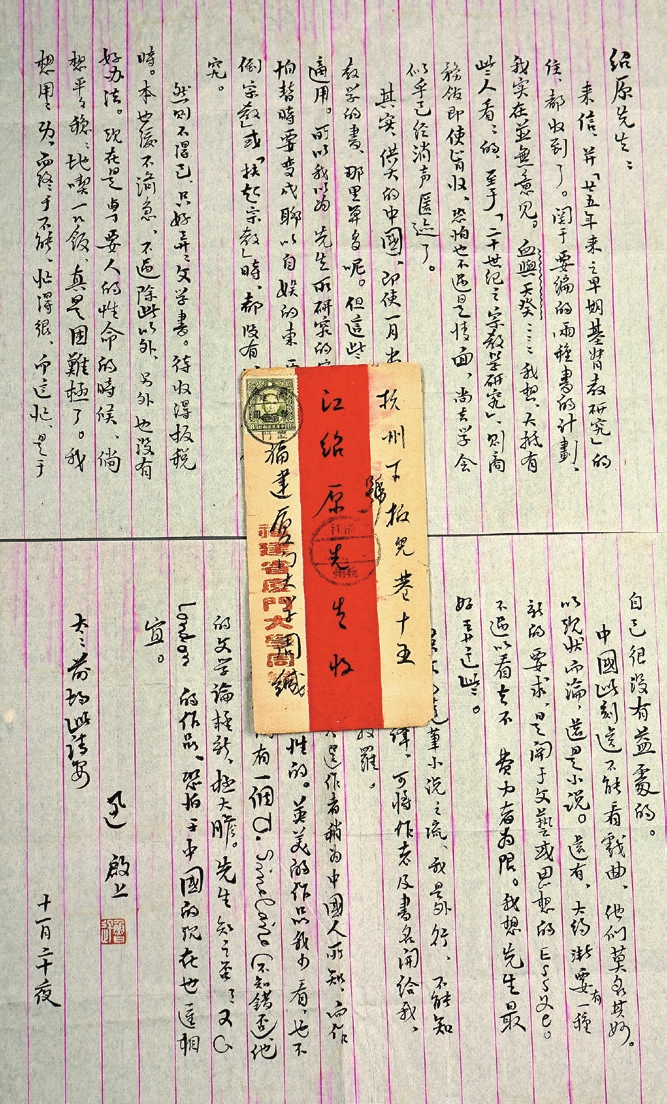 绍原先生：
来信，并「廿五年来之早期基督教研究」的
住，都收到了。関于要编的两種書的计劃，
我实在並無意见。血與天癸……我想，大抵有
些人看看的，至于「二十世纪之宗教学研究」，则商
務飯即使肯收，恐怕也不過是情面，尚志学会
似乎已经消声匿迹了。
其实，偌大的中國，即使一月出
教学的書，那里算多呢。但這些
適用。所以我以为 先生所研究的宗
怕暫時要变成聊以自娱的東西
倒宗教」或「扶起宗教」時，都没有
究。
然則不得已，只好弄弄文学書。待收得板税
時，本也缓不濟急，不過除此以外，另外也没有
好办法。现在是專要人的性命的時候，倘
想平平稳稳地喫一口飯，真是困難極了。我
想用用功，而终于不能，忙得很，而這忙，是于
杭州下板兒巷十五
號
江绍原先生收
福建厦門大学周緘
福建省廈門大學
自己很没有益處的。
中國此刻還不能看戲曲，他们莫名其妙。
以现状而論，還是小说。還有，大约漸要有一種
新的要求，是関于文藝或思想的Essay。
不過以看去不費力者为限。我想先生最
好弄這些。
筆小说之流，我是外行，不能知
可將作者及書名開给我，
羅。
是作者稍为中國人所知，而作
性的。英美的作品我少看，也不
有一個U. Sinclare（不知錯否），他
的文学論極新，極大膽。先生知之否？又J
London 的作品，恐怕于中國的现在也還相
宜。
太太前均此請安
迅 啟上
十一月二十夜